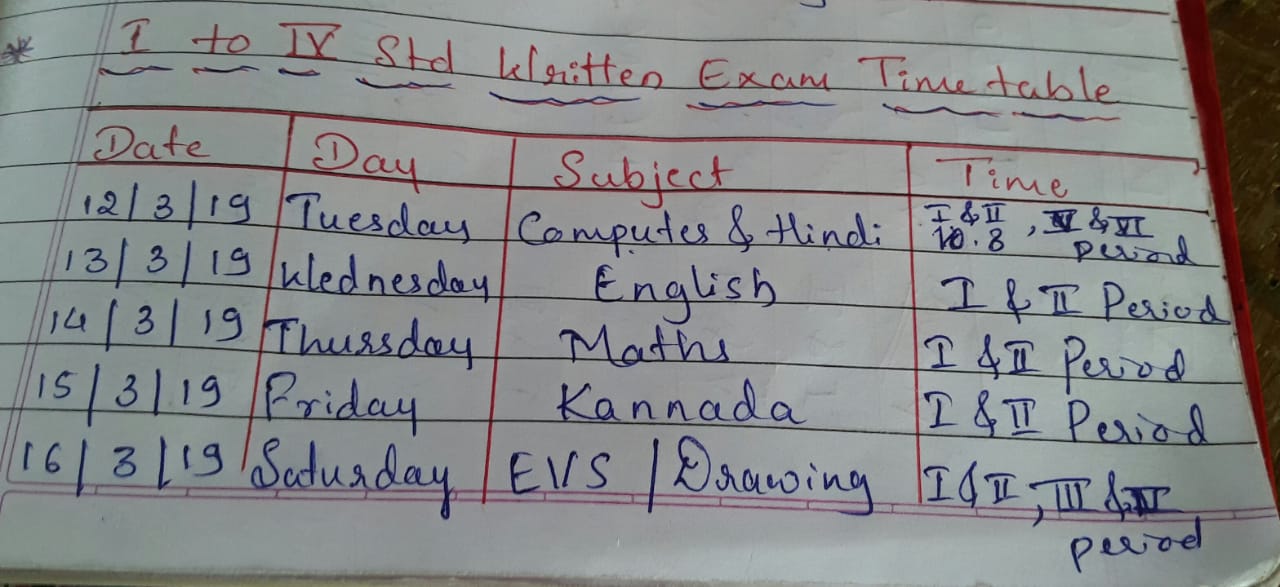 * I to IV Std Written Exam Time table
Date Day Subject Time
12/3/19 Tuesday Computer & Hindi I & II, & VI
period
13/3/19 Wednesday English I & II Period
14/3/19 Thursday Maths I & II Period
15/3/19 Friday Kannada I & II Period
16/3/19 Saturday EVS / Drawing I & II, III &
period